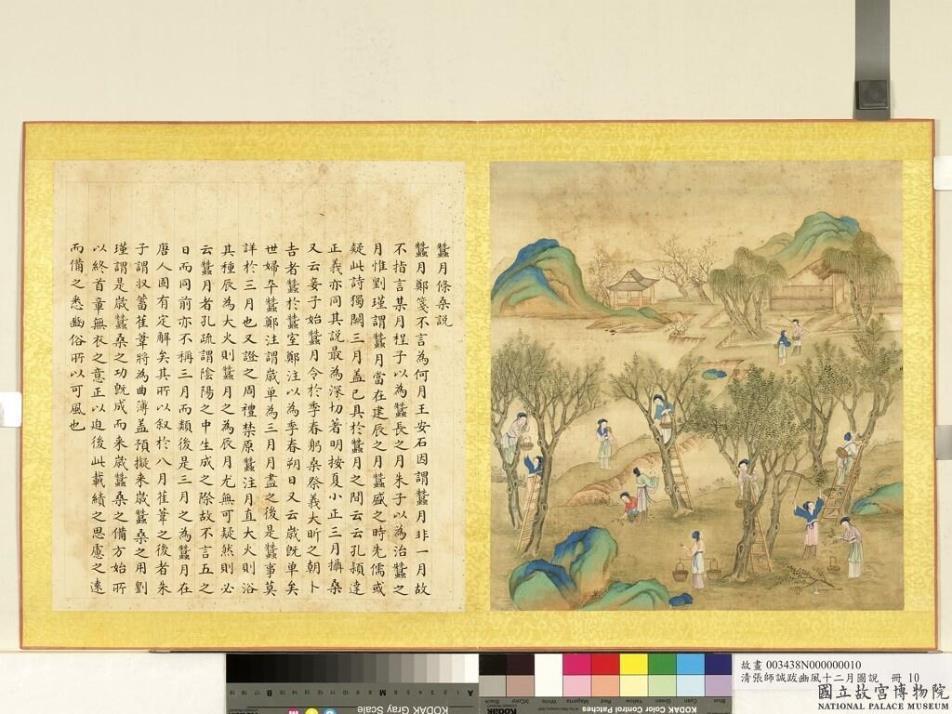 蠶月條桑説
蠶月鄭箋不言為何月王安石因謂蠶月非一月故
不指言某月程子以為蠶長之月朱子以為治蠶之
月惟劉瑾謂蠶月當在建辰之月蠶盛之時先儒或
疑此詩獨闕三月蓋已具於蠶月之間云云孔穎達
正義亦同其説最為深切著明按夏小正三月攝桑
又云妾子始蠶月令於季春躬桑祭義大昕之朝卜
吉者蠶於蠶室鄭注以為季春朔日又云歲既單矣
世婦卒蠶鄭注謂歲單為三月月盡之後是蠶事莫
詳於三月也又證之周禮禁原蠶注月直大火則浴
其種辰為大火則蠶月之為辰月尤無可疑然則必
云蠶月者孔疏謂陰陽之中生成之際故不言五之
日而同前亦不稱三月而類後是三月之為蠶月在
唐人固有定解矣其所以叙於八月萑葦之後者朱
子謂収蓄萑葦將為曲薄蓋預擬来歲蠶桑之用劉
瑾謂是歲蠶桑之功既成而来歲蠶桑之備方始所
以終首章無衣之意正以迫後此載績之思慮之遠
而備之悉豳俗所以可風也
故畫 003438N000000010
清張師誠跋豳風十二月圖說 冊 10
國立故宮博物院
NATIONAL PALACE MUSEUM
KODAK Gray Scale
KODAK Color Control Patches